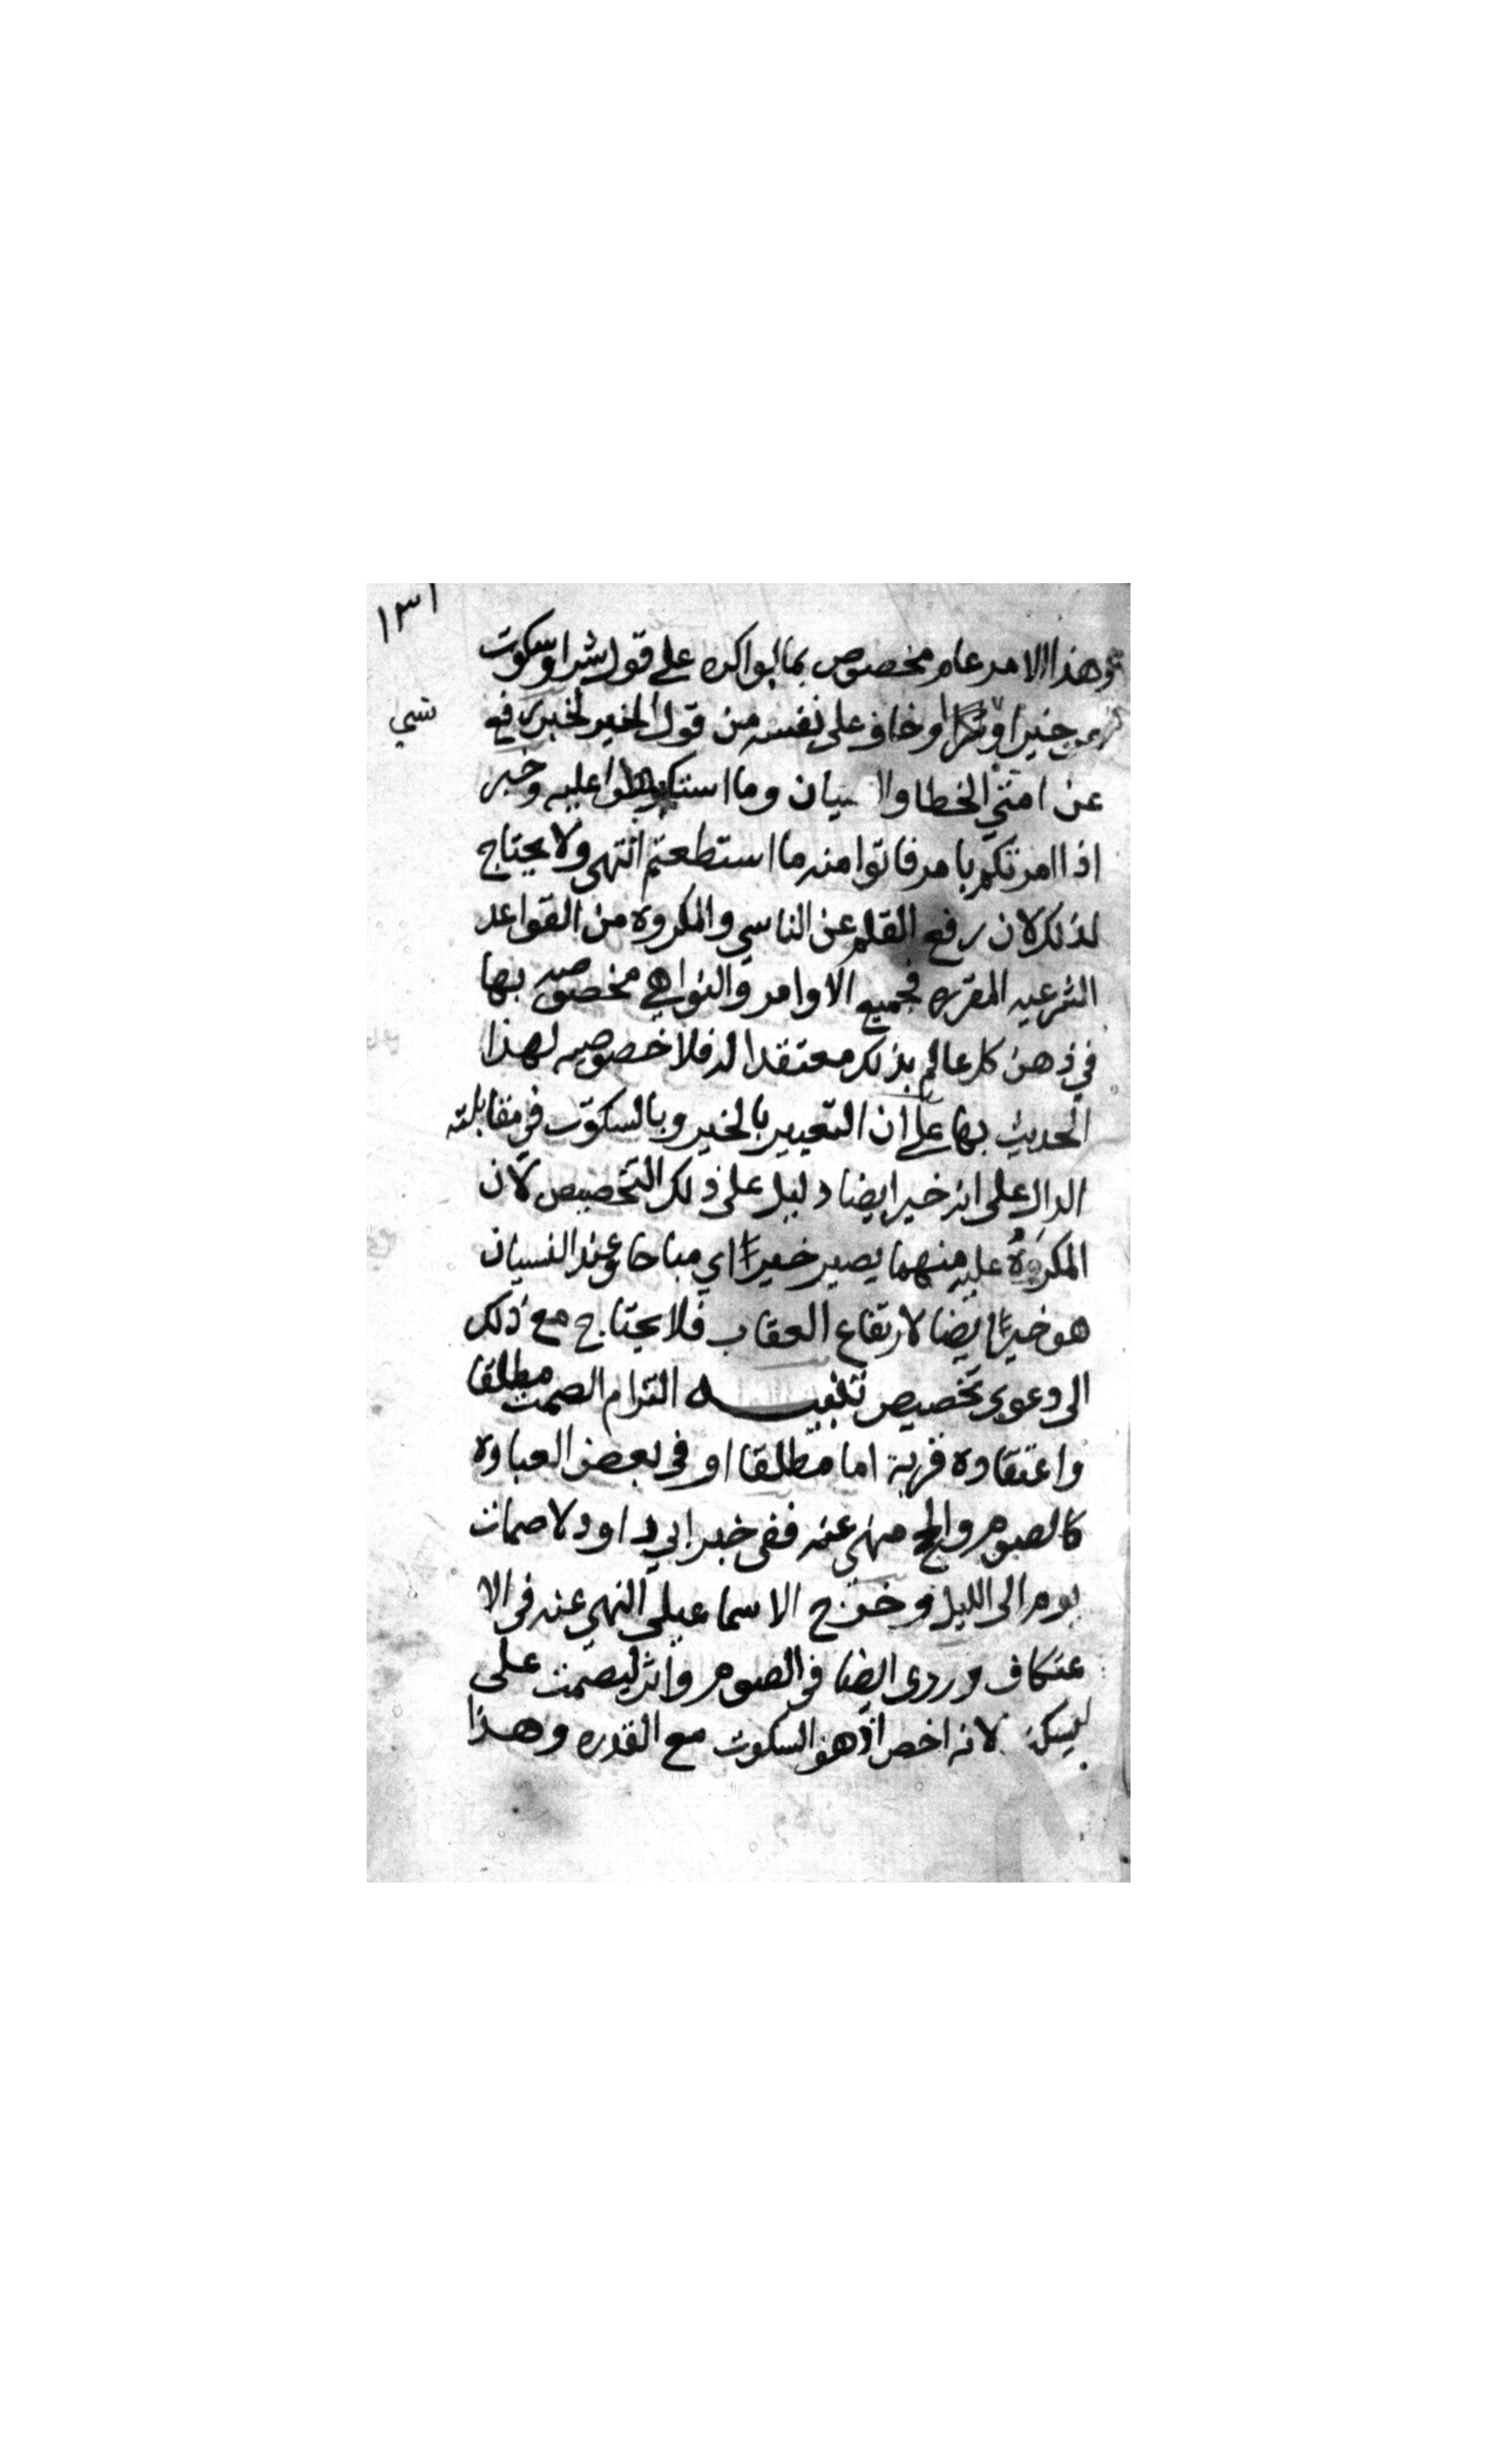 ١٣١
وهذا الامر عام مخصوص بما لو اكره على قول شرا وسكوت
عن خير او نسي او خاف على نفسه من قول الخير لخبر رفع
نسي
عن امتي الخطا والنسيان وما استكرهوا عليه وخبر
اذا امرتكم بامر فاتوا منه ما استطعتم انتهى ولا يحتاج
لذلك لان رفع القلم عن الناسي والمكروه من القواعد
الشرعيه المقرره فجميع الاوامر والنواهي مخصوصه بها
في ذهن كل عالم بذلك معتقدا له فلا خصوصيه لهذا
الحديث بها على ان التعبير بالخير وبالسكوت في مقابلته
الدال على انه خير ايضا دليل على ذلك التخصيص لان
المكروهُ عليه منهما يصير خيرا اي مباحا وعند النسيان
هو خيرا ايضا لارتفاع العقاب فلا يحتاج مع ذلك
الى دعوى تخصيص تنبيه التزام الصمت مطلقا
واعتقاده قربة اما مطلقا او في بعض العباده
كالصوم والحج منهي عنه ففي خبر ابي داود لا صمات
يوم الى الليل وخرج الاسماعيلي النهي عنه في الا
عتكاف وروى ايضا في الصوم واثر ليصمت على
ليسكت لانه اخص اذ هو السكوت مع القدره وهذا